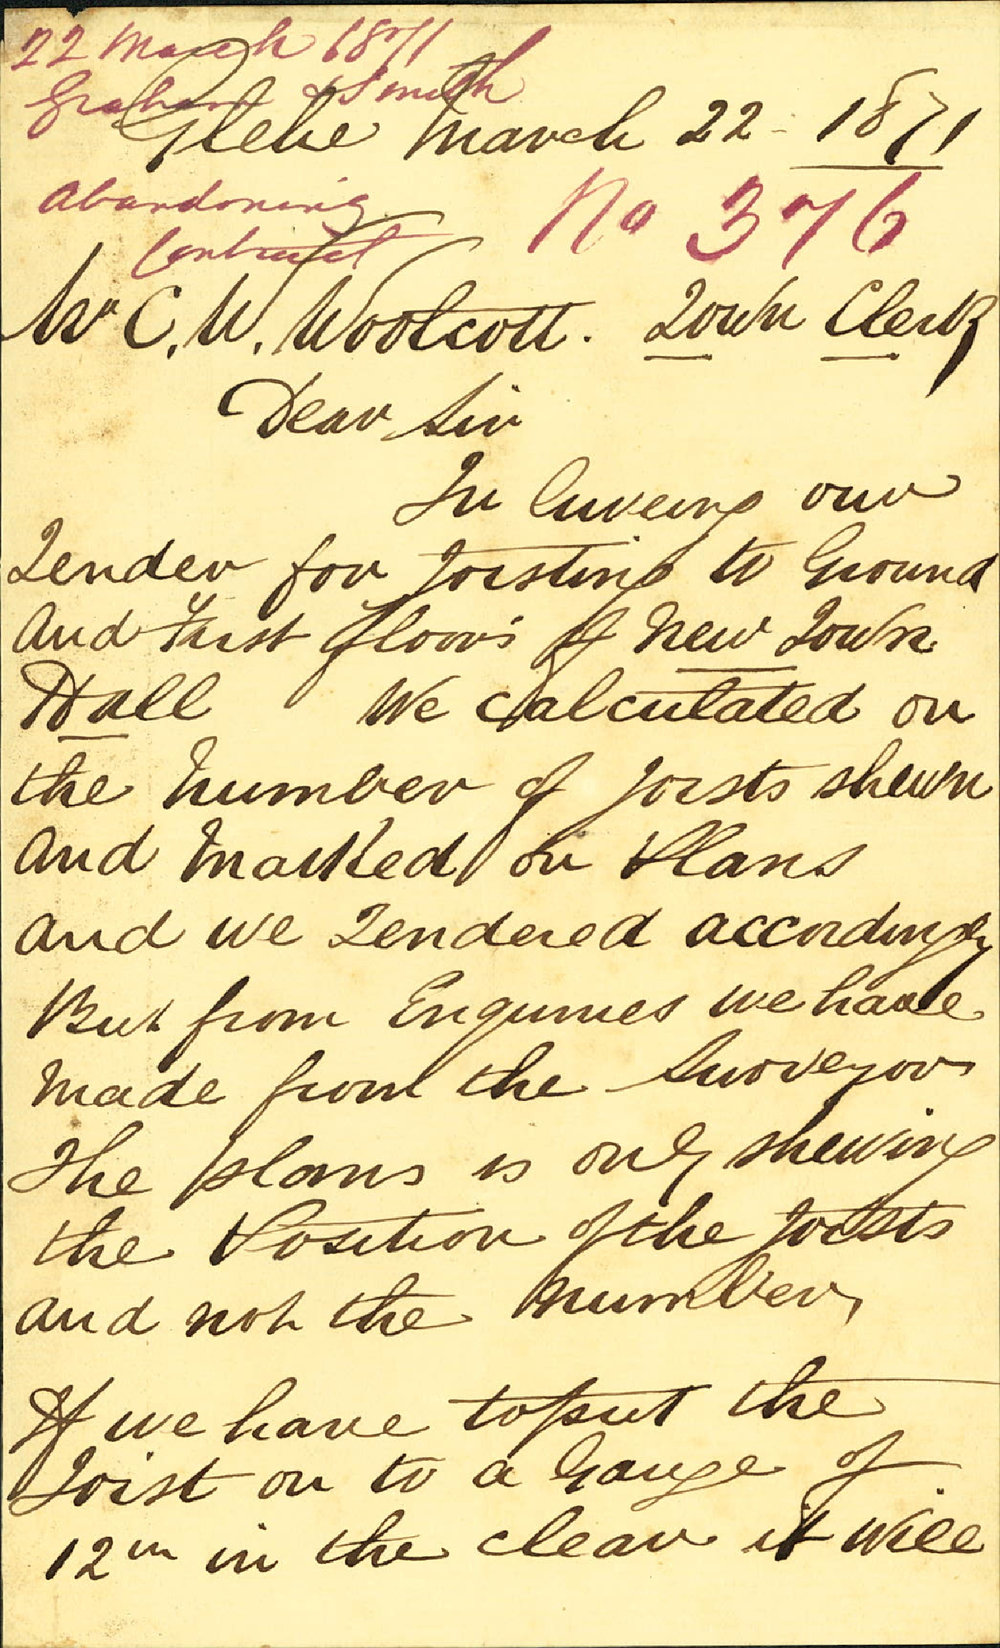 22 March 1871
Graham & Smith
Glebe March 22 - 1871
Abandoning
Contract
No 376
Mr C. W. Woolcott. Town Clerk
Dear Sir
In Giveing our
Tender for Joisting to Ground
And First floors of New Town
Hall We calculated on
the Number of Joists shewn
And Marked on Plans
and we Tendered accordingly
But from Enquires we have
Made from the Surveyor
The plans is only shewing
the Position of the Joists
and not the Number,
If we have to put the
Joist on to a Gauge of
12 in in the clear it will